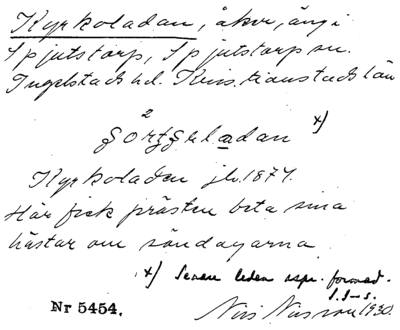 Kyrkoladan, åker, äng i
Spjutstorp, Spjutstorp sn.
Ingelstads hd. Kristianstads län
2 x)
Kyrkoladen jb. 1874.
Här fick prästen beta sina
hästar om söndagarna.
x) Senare leden uspr. formed.
S. I-s.
Nr 5454.
Nils Nilsson 1930.